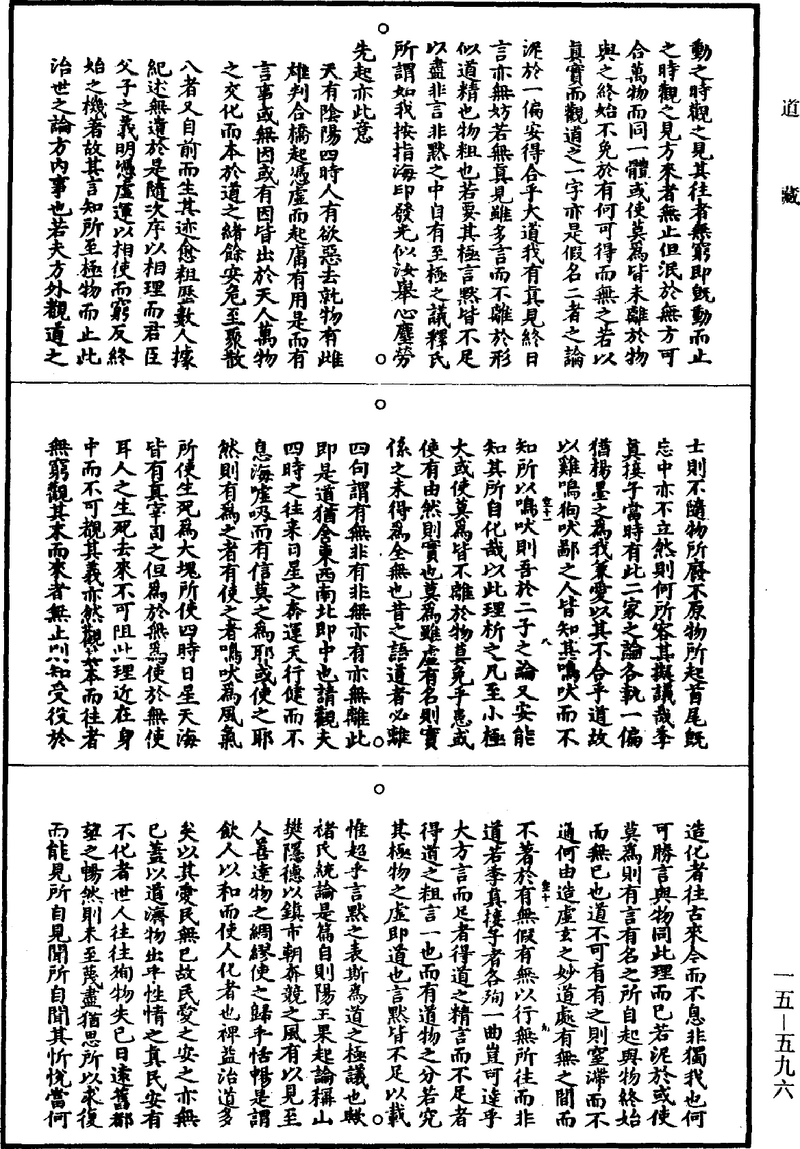 道藏
動之時觀之見其往者無窮即既動而止
之時觀之見方來者無止但泯於無方可
合萬物而同一體或使莫為皆未離於物
與之終始不免於有何可得而無之若以
真實而觀道之一字亦是假名二者之論
泥於一偏安得合乎大道我有真見終日
言亦無妨若無真見雖多言而不離於形
似道精也物粗也若要其極言黙皆不足
以盡非言非黙之中自有至極之議釋氏
所謂如我按指海印發光似汝舉心塵勞
先起亦此意
天有陰陽四時人有欲惡去就物有雌
雄判合橋起憑虛而起庸有用是而有
言事或無因或有因皆出於天人萬物
之交化而本於道之緒餘安危至聚散
八者又自前而生其迹愈粗歷數人據
紀述無遺於是隨次序以相理而君臣
父子之義明憑虛運以相使而窮反終
始之機著故其言知所至極物而止此
治世之論方內事也若夫方外觀道之
士則不隨物所廢不原物所起首尾既
忘中亦不立然則何所容其擬議哉季
真接子當時有此二家之論各執一偏
猶楊墨之為我兼愛以其不合乎道故
以雞鳴狗吠鄙之人皆知其鳴吠而不
知所以鳴吠則吾於二子之論又安能
知其所自化哉以此理析之凡至小極
大或使莫為皆不離於物莫免乎患或
使有由然則實也莫為雖虛有名則實
係之未得為全無也昔之語道者必離
四句謂有無非有非無亦有亦無離此
即是道猶舍東西南北即中也請觀夫
四時之往來日星之奔運天行健而不
息海噓吸而有信莫之為耶或使之耶
然則有為之者有使之者鳴吠為風氣
所使生死為大塊所使四時日星天海
皆有真宰司之但為於無為使於無使
耳人之生死去來不可阻此理近在身
中而不可覩其義亦然觀其本而往者
無窮觀其末而來者無止則知受役於
造化者往古來今而不息非獨我也何
可勝言與物同此理而已若泥於或使
莫為則有言有名之所自起與物終始
而無已也道不可有有之則窒滯而不
通何由造虛玄之妙道處有無之間而
不著於有無假有無以行無所往而非
道若季真接子者各殉一曲豈可達乎
大方言而足者得道之精言而不足者
得道之粗言一也而有道物之分若究
其極物之虛即道也言黙皆不足以載
惟超乎言黙之表斯為道之極議也歟
褚氏統論是篇自則陽王果起論稱山
樊隱德以鎮市朝奔競之風有以見至
人善達物之綢繆使之歸乎恬暢是謂
飲人以和而使人化者也裨益治道多
矣以其愛民無已故民愛之安之亦無
已蓋以道濟物出乎性情之真民安有
不化者世人往往徇物失已日遠舊都
望之暢然則未至蔑盡猶思所以求復
而能見所自見聞所自聞其忻悅當何
一五—五九六